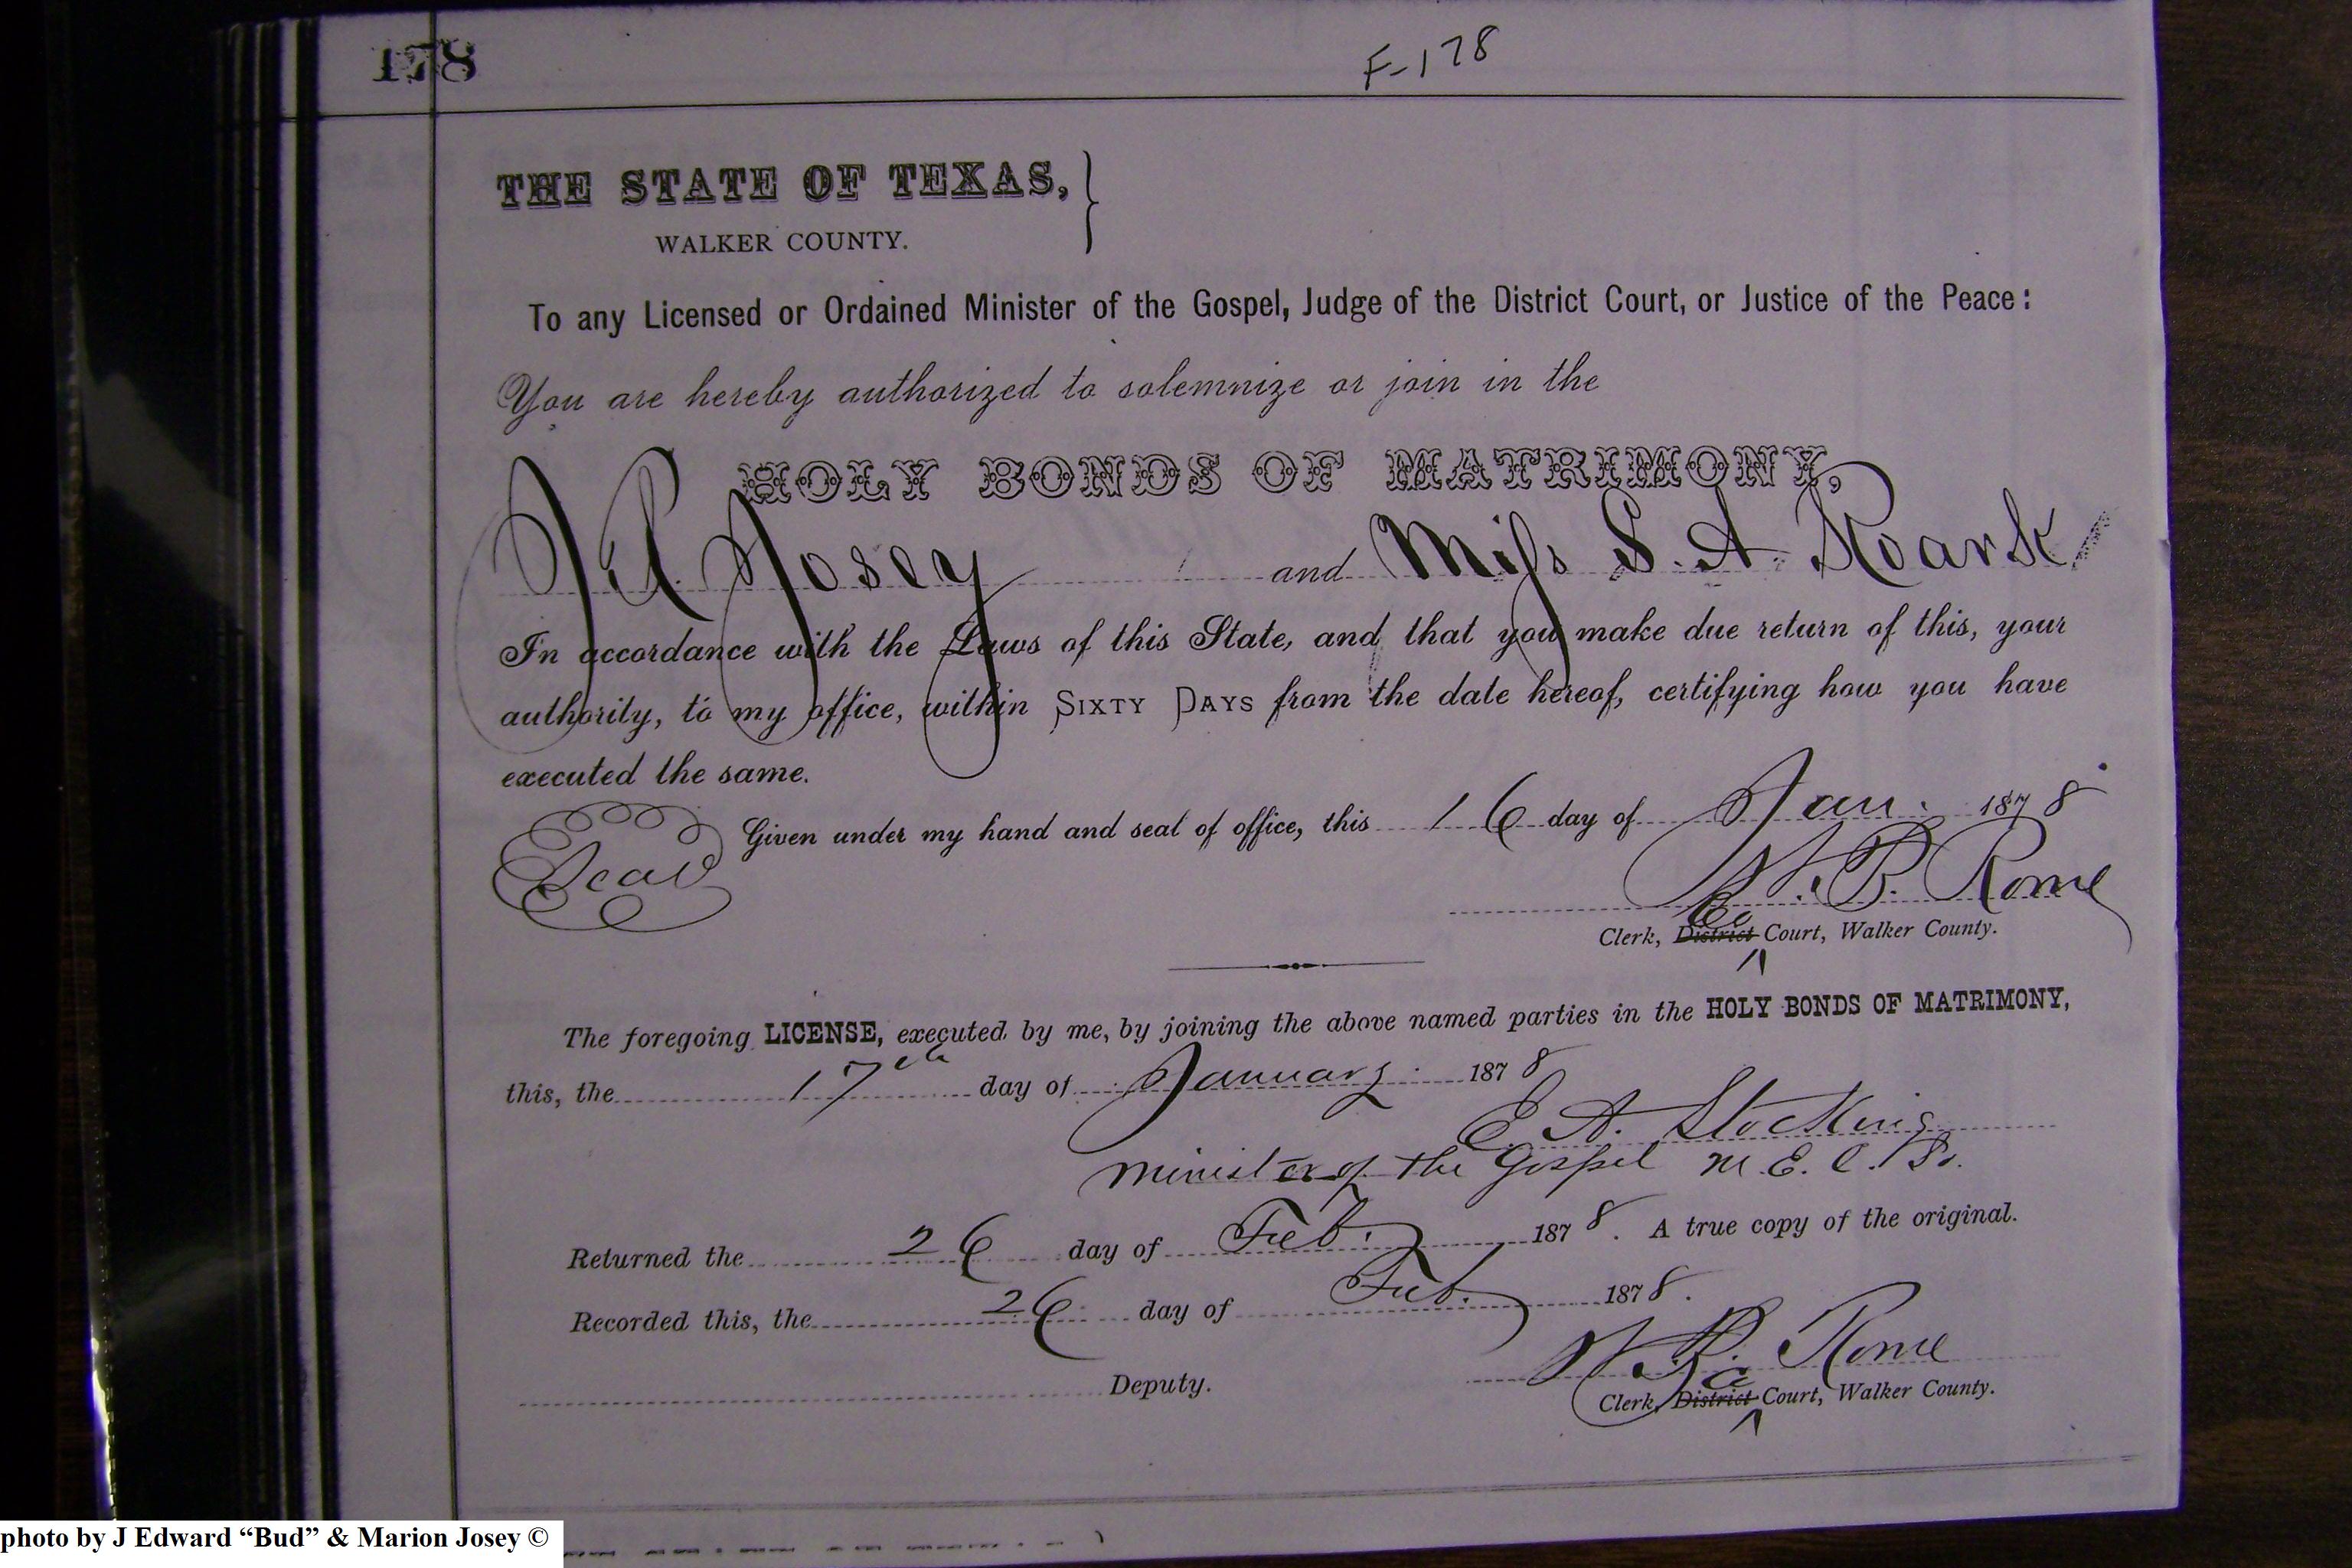 178
F-178
THE STATE OF TEXAS,
WALKER COUNTY.
To any Licensed or Ordained Minister of the Gospel, Judge of the District Court, or Justice of the Peace:
You are hereby authorized to solemnize or join in the
HOLY BONDS OF MATRIMONY,
Josey and Miss S. A. Roark
In accordance with the Laws of this State, and that you make due return of this, your
authority, to my office, within SIXTY DAYS from the date hereof, certifying how you have
executed the same.
Given under my hand and seal of office, this 16 day of Jan. 1878
Seal
W. B. Rome
Co
Clerk, District Court, Walker County.
The foregoing LICENSE, executed by me, by joining the above named parties in the HOLY BONDS OF MATRIMONY,
this, the 17th day of January 1878
E. A. Stocking
Minister of the Gospel M. E. C. So.
Returned the 26 day of Feb. 1878. A true copy of the original.
Recorded this, the 26 day of Feb. 1878.
W. B. Rome
Deputy.
Clerk, District Court, Walker County.
photo by J Edward “Bud” & Marion Josey ©